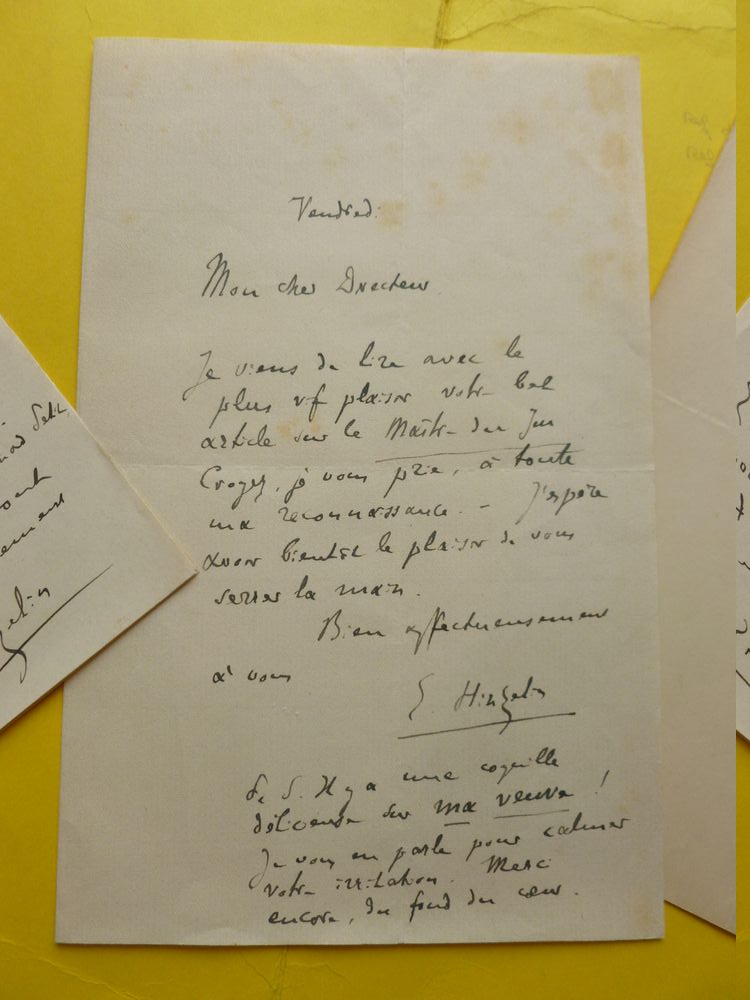 Vendredi
Mon cher Directeur
Je viens de lire avec le
plus vif plaisir votre bel
article sur le Maître du Jeu
Croyez, je vous prie, à toute
ma reconnaissance. – J'espère
avoir bientôt le plaisir de vous
serrer la main.
Bien affectueusement
à vous
E. Hinzelin
P. S. Il y a une coquille
délicieuse sur ma veuve !
Je vous en parle pour calmer
votre irritation. Merci
encore, du fond du cœur.